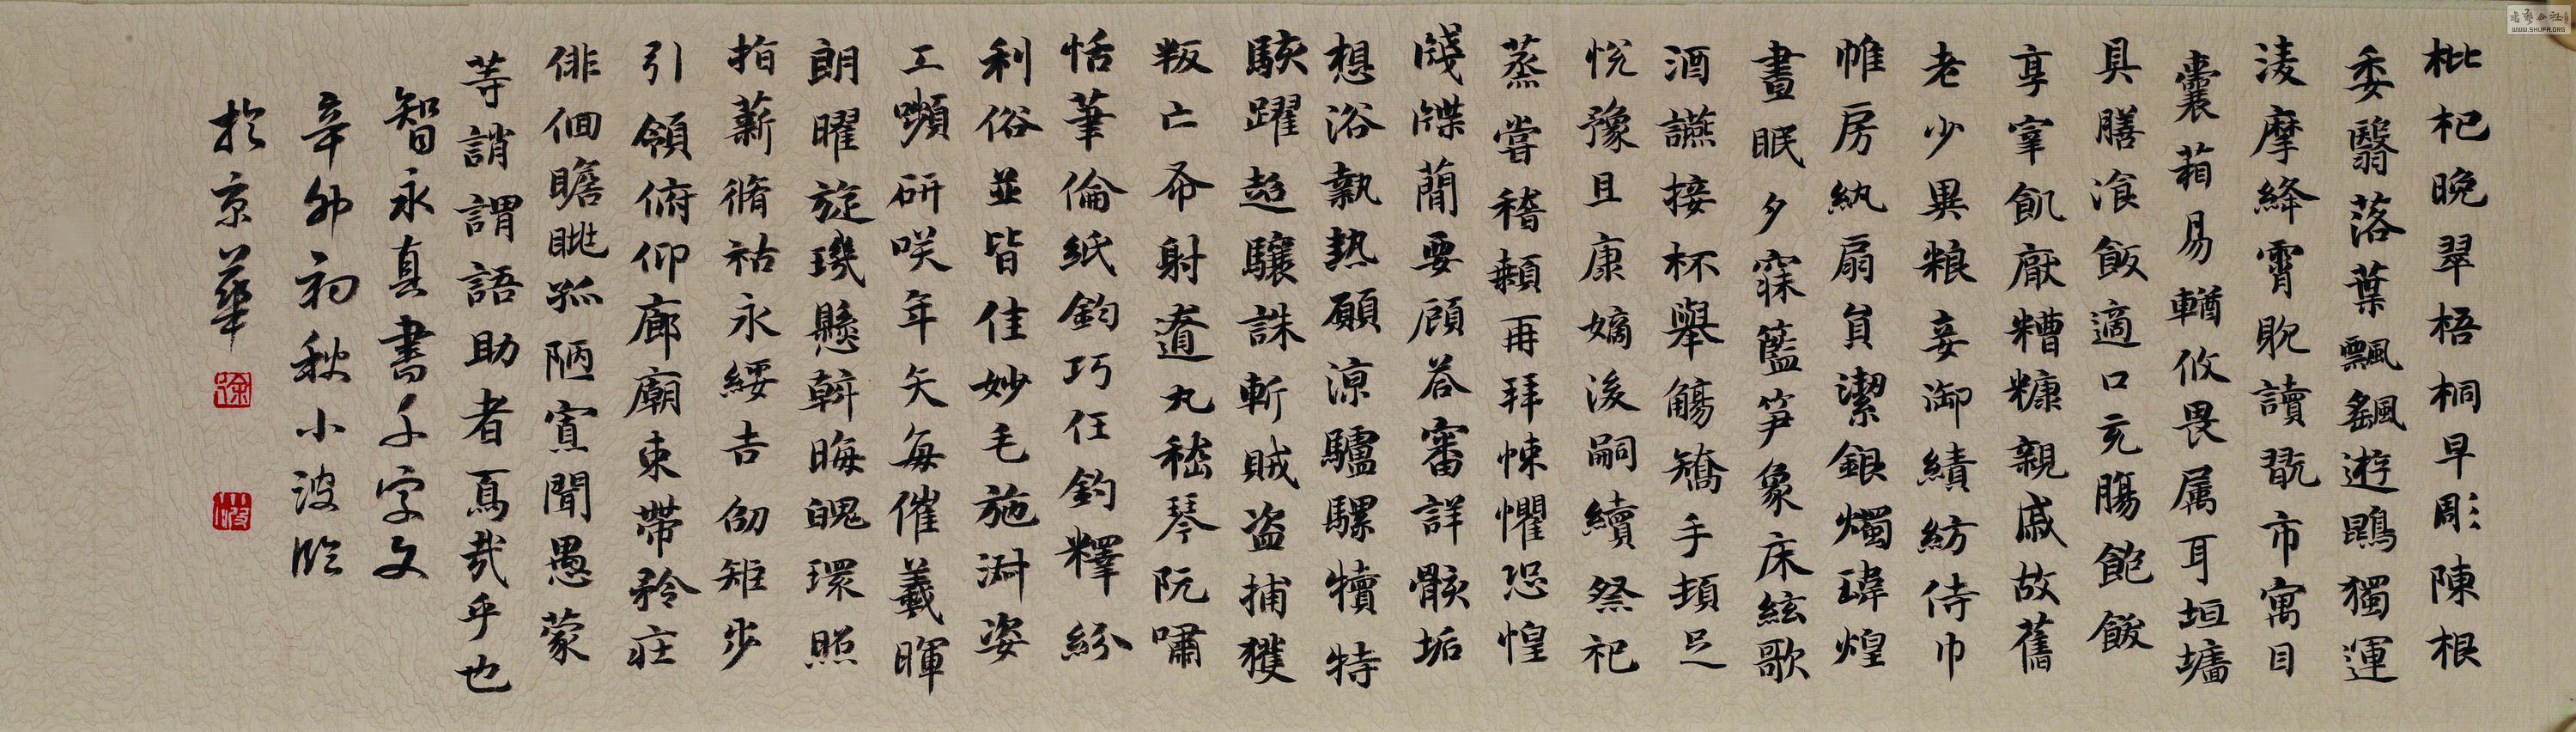 枇杷晚翠梧桐早彫陳根
委翳落葉飄颻遊鵾獨運
淩摩絳霄耽讀翫市寓目
囊葙易輶攸畏属耳垣墻
具膳湌飯適口充腸飽飫
享宰飢厭糟糠親戚故舊
老少異粮妾御績紡侍巾
帷房紈扇負潔銀燭瑋煌
晝眠夕寐籃笋象床絃歌
酒讌接杯舉觴矯手頓足
悅豫且康嫡後嗣續祭祀
蒸嘗稽顙再拜悚懼恐惶
牋牒蕳要顧荅審詳骸垢
想浴執熱願涼驢騾犢特
駭躍超驤誅斬賊盗捕獲
叛亡布射遼丸嵇琴阮嘯
恬筆倫紙鈞巧任釣釋紛
利俗並皆佳妙毛施淑姿
工嚬研咲年矢每催羲暉
朗曜旋璣懸斡晦魄環照
指薪脩祜永綏吉劭矩步
引領俯仰廊廟束帶矜莊
俳佪瞻眺孤陋寡聞愚蒙
等誚謂語助者焉哉乎也
智永真書千字文
辛卯初秋小波臨
於京華
書藝公社
WWW.SHUFA.ORG